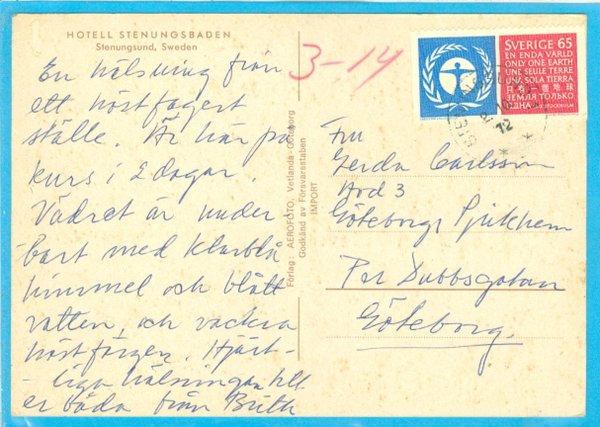 HOTELL STENUNGSBADEN
Stenungsund, Sweden
En hälsning från
ett höstfagert
ställe. Är här på
kurs i 2 dagar.
Vädret är under-
bart med klarblå
himmel och blått
vatten, och vackra
höstfärger. Hjärt-
liga hälsningar till
er båda från Brith
3-14
Förlag: AEROFOTO, Vetlanda-Göteborg
Godkänd av Försvarsstaben
IMPORT
SVERIGE 65
EN ENDA VÄRLD
ONLY ONE EARTH
UNE SEULE TERRE
UNA SOLA TIERRA
只有一個地球
ЗЕМЛЯ ТОЛЬКО
ОДНА
72
Fru
Gerda Carlsson
Avd 3
Göteborgs Sjukhem
Per Dubbsgatan
Göteborg.